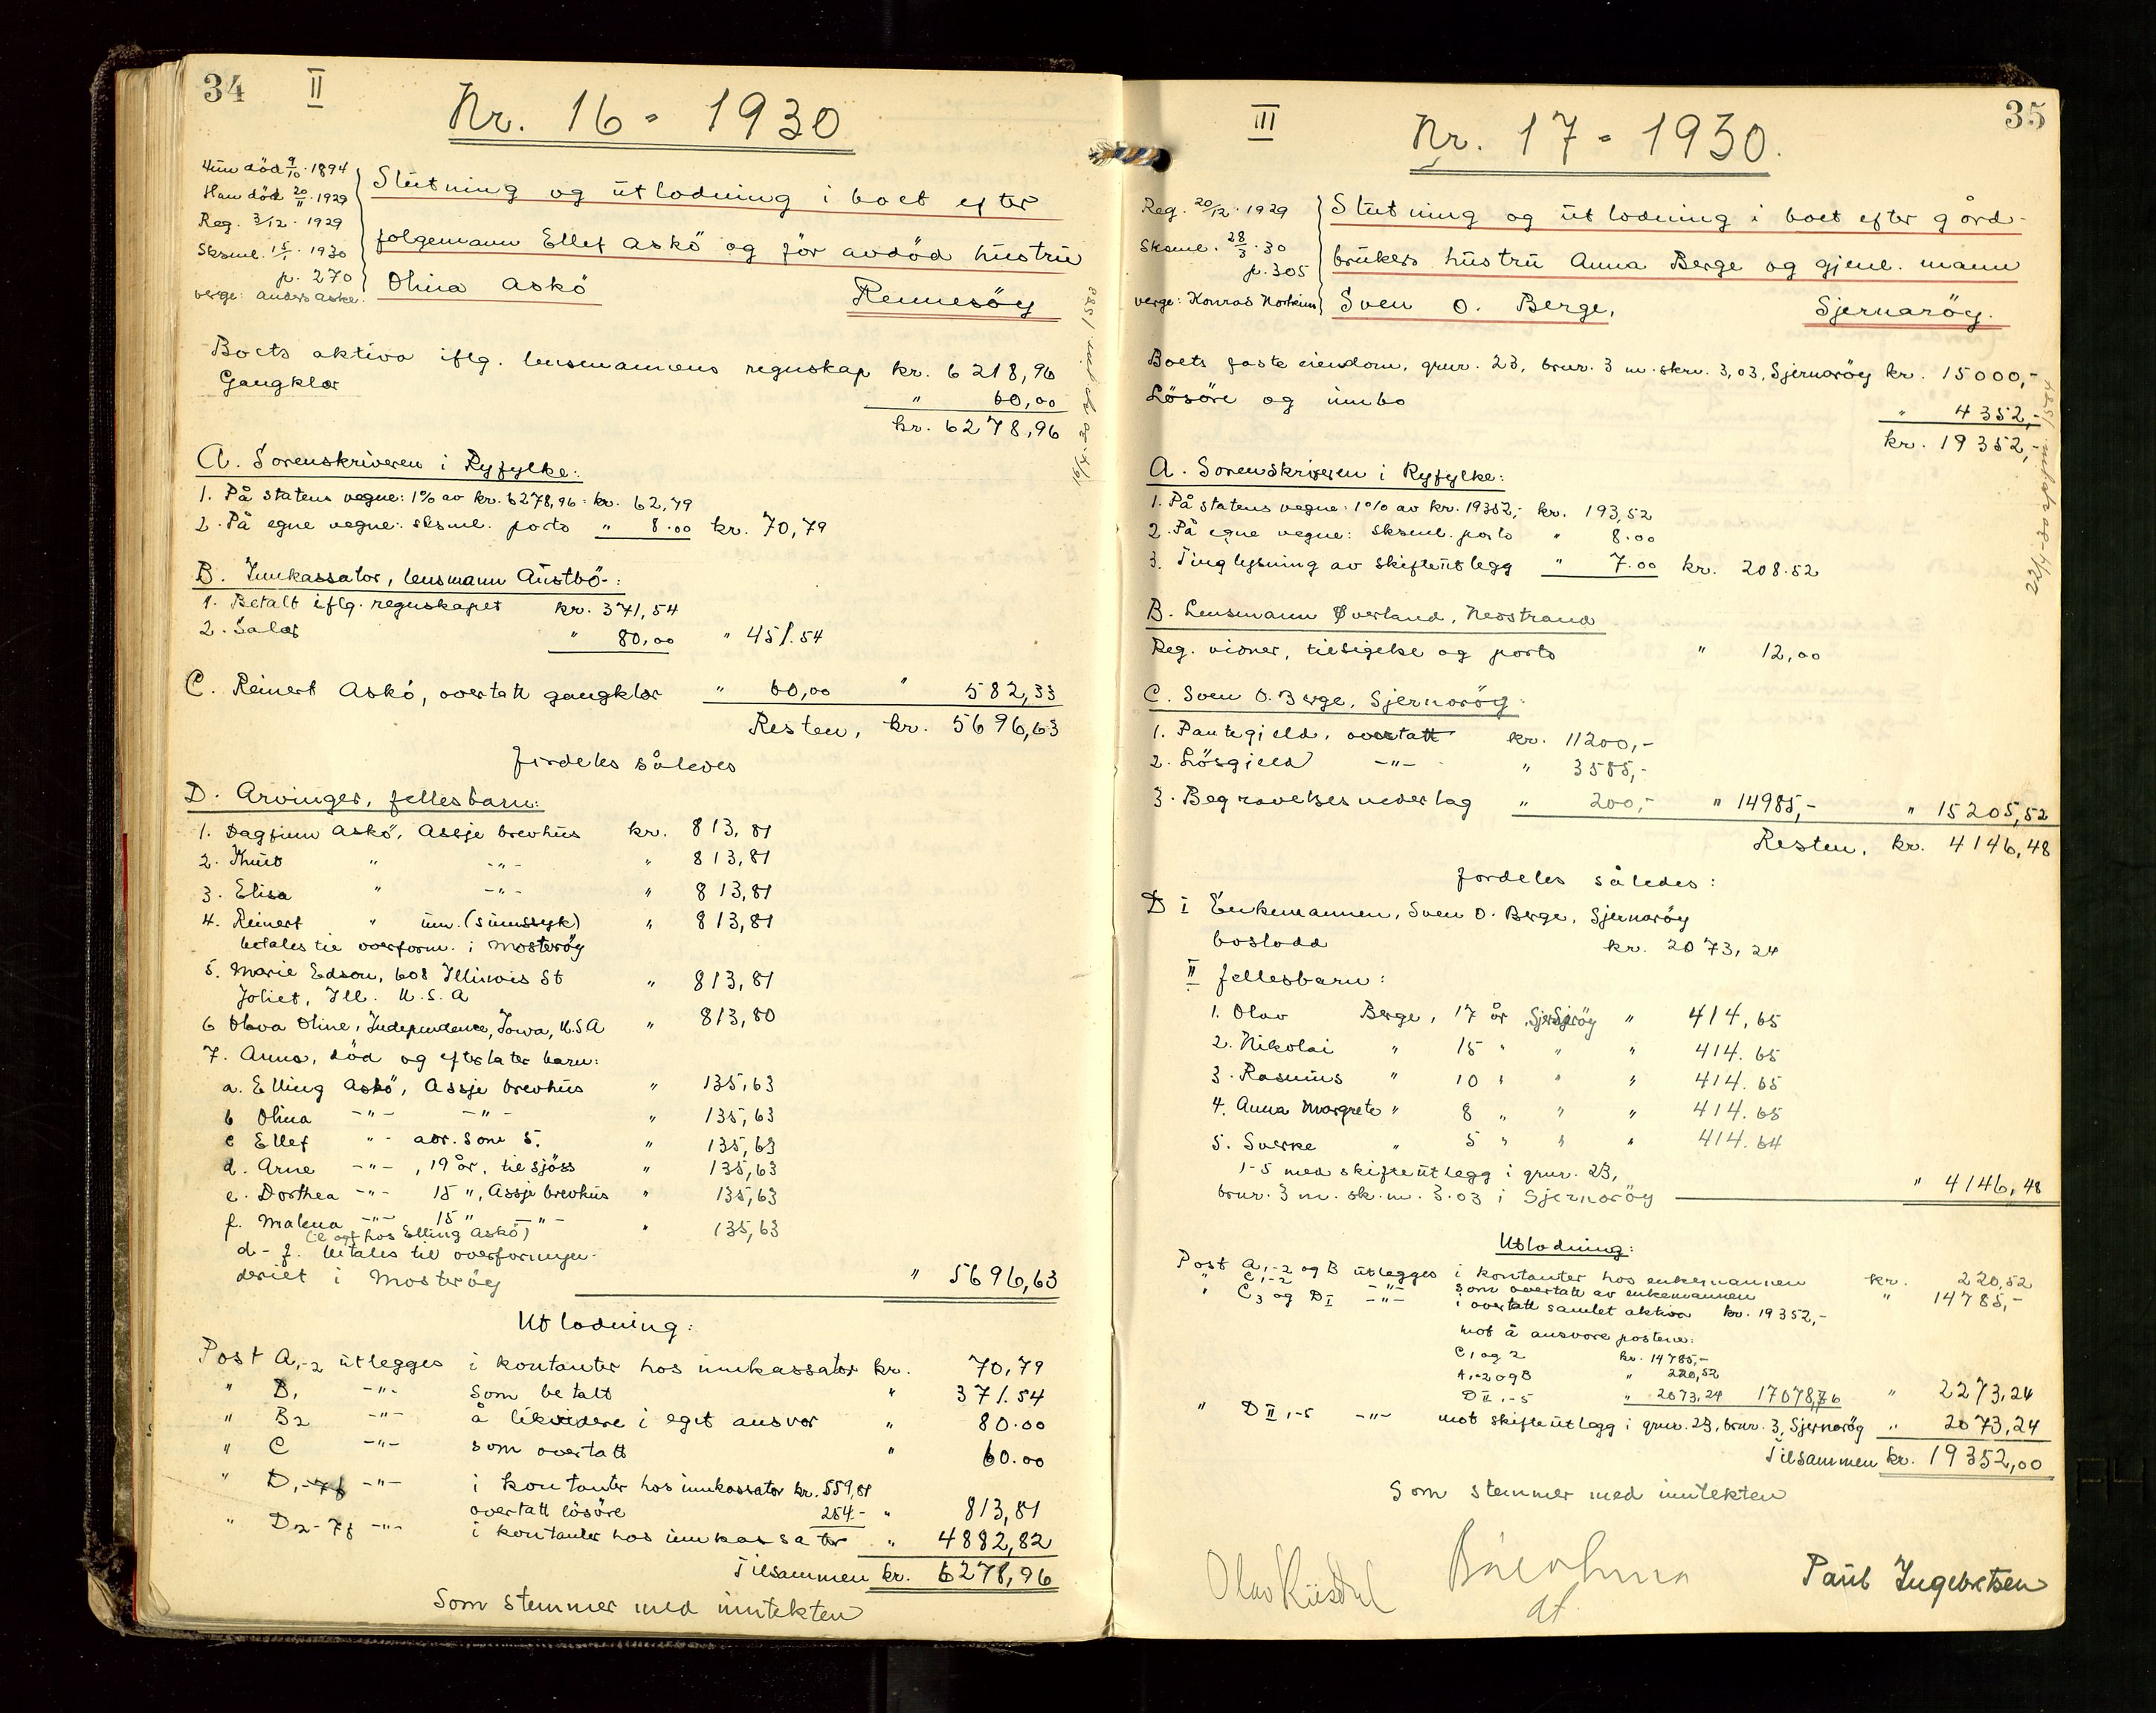 34 II
Nr. 16 - 1930
Hun död 9/10. 1894
Han död 20/11. 1929
Reg. 3/12. 1929
Sksml. 15/1. 1930
p. 270
verge: anders aske.
Slutning og utlodning i boet efter
folgemann Ellef Askö og för avdöd hustru
Olina Askö Rennesöy
Boets aktiva iflg. lensmannens regnskap kr. 6218,96
Gangklær " 60,00
kr. 6278,96
A. Sorenskriveren i Ryfylke:
1. På statens vegne: 1% av kr. 6278,96 = kr. 62,79
2. På egne vegne: sksml. porto " 8.00 kr. 70,79
B. Innkassator, lensmann Austbö:
1. Betalt iflg. regnskapet kr. 371,54
2. Salær " 80,00 " 451.54
C. Reinert Askö, overtatt gangklær " 60,00 " 582,33
Resten, kr. 5696,63
fordeles således
D. Arvinger, fellesbarn:
1. Dagfinn Askö, Assje brevhus kr. 813,81
2. Knut " -"- " 813,81
3. Elisa " -"- " 813,81
4. Reinert " um. (sinnssyk) " 813,81
betales til overform. i Mosteröy
5. Marie Edson, 608 Illinois St " 813,81
Joliet, Ill. U.S.A
6 Olava Oline, Independence, Iowa, U.S.A " 813,80
7. Anna, död og efterlater barn:
a. Elling Askö, Assje brevhus " 135,63
b Olina -"- -"- " 135,63
c Ellef "- adr. som 5. " 135,63
d. Arne -"- , 19 år, til sjöss " 135,63
e. Dorthea -"- 15 ", Assje brevhus " 135,63
f. Malena -"- 15 " -"- " 135,63
(e og f hos Elling Askö)
d - f. betales til overformyn-
deriet i Mosteröy " 5696,63
Utlodning:
Post A,-2 utlegges i kontanter hos innkassator kr. 70,79
" B, -"- som betalt " 371.54
" B2 -"- å likvidere i eget ansvar " 80.00
" C -"- som overtatt " 60.00
" D,-7f -"- i kontanter hos innkassator kr. 559,81
overtatt lösöre 254.- " 813,81
" D2-7f -"- i kontanter hos innkassator " 4882,82
Tilsammen kr. 6278,96
Som stemmer med inntekten
35
III
Nr. 17 - 1930.
Reg. 20/12. 1929
Sksml. 28/3. 30
p. 305
verge: Konrad Norheim
Slutning og utlodning i boet efter gård-
brukers hustru Anna Berge og gjenl. mann
Sven O. Berge, Sjernaröy.
Boets faste eiendom, gnr. 23, bnr. 3 m. skm. 3,03, Sjernaröy kr. 15000,-
Lösöre og innbo " 4352,-
kr. 19352,-
A. Sorenskriveren i Ryfylke:
1. På statens vegne: 1% av kr. 19352,- kr. 193,52
2. På egne vegne: sksml. porto " 8.00
3. Tinglysning av skifteutlegg " 7.00 kr. 208.52
B. Lensmann Øverland, Nedstrand
Reg. vidner, tilsigelse og porto " 12,00
C. Sven O. Berge, Sjernaröy:
1. Pantegjeld, overtatt kr. 11200,-
2. Lösgjeld -"- " 3585,-
3. Begravelsesnederlag " 200,- " 14985,- " 15205,52
Resten, kr. 4146,48
fordeles således:
D I Enkemannen, Sven O. Berge, Sjernaröy
boslodd kr. 2073,24
II fellesbarn:
1. Olav Berge, 17 år Sjernaröy " 414,65
2. Nikolai " 15 " " " 414.65
3. Rasmus " 10 " " " 414.65
4. Anna Margrete " 8 " " " 414.65
5. Sverke " 5 " " " 414.64
1-5 med skifteutlegg i gnr. 23,
bnr. 3 m. sk.m. 3.03 i Sjernaröy " 4146,48
Utlodning:
Post A,-2 og B utlegges i kontanter hos enkemannen kr. 220,52
" C,-2 -"- som overtatt av enkemannen " 14785,-
" C3 og DI -"- i overtatt samlet aktiva kr. 19352,-
mot å ansvare postene:
C 1 og 2 kr. 14785,-
A,-2 og B " 220,52
D II,-5 " 2073.24 17078,76 " 2273,24
" D II,-5 -"- mot skifteutlegg i gnr. 23, bnr. 3, Sjernaröy " 2073,24
Tilsammen kr. 19352,00
Som stemmer med inntekten
Paul Ingebretsen